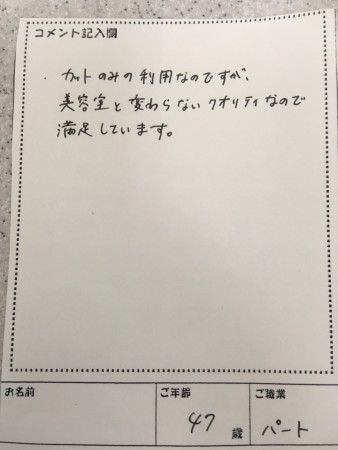 コメント記入欄
・カットのみの利用なのですが、
美容室と変わらないクオリティなので
満足しています。
お名前
ご年齢
ご職業
47歳
パート